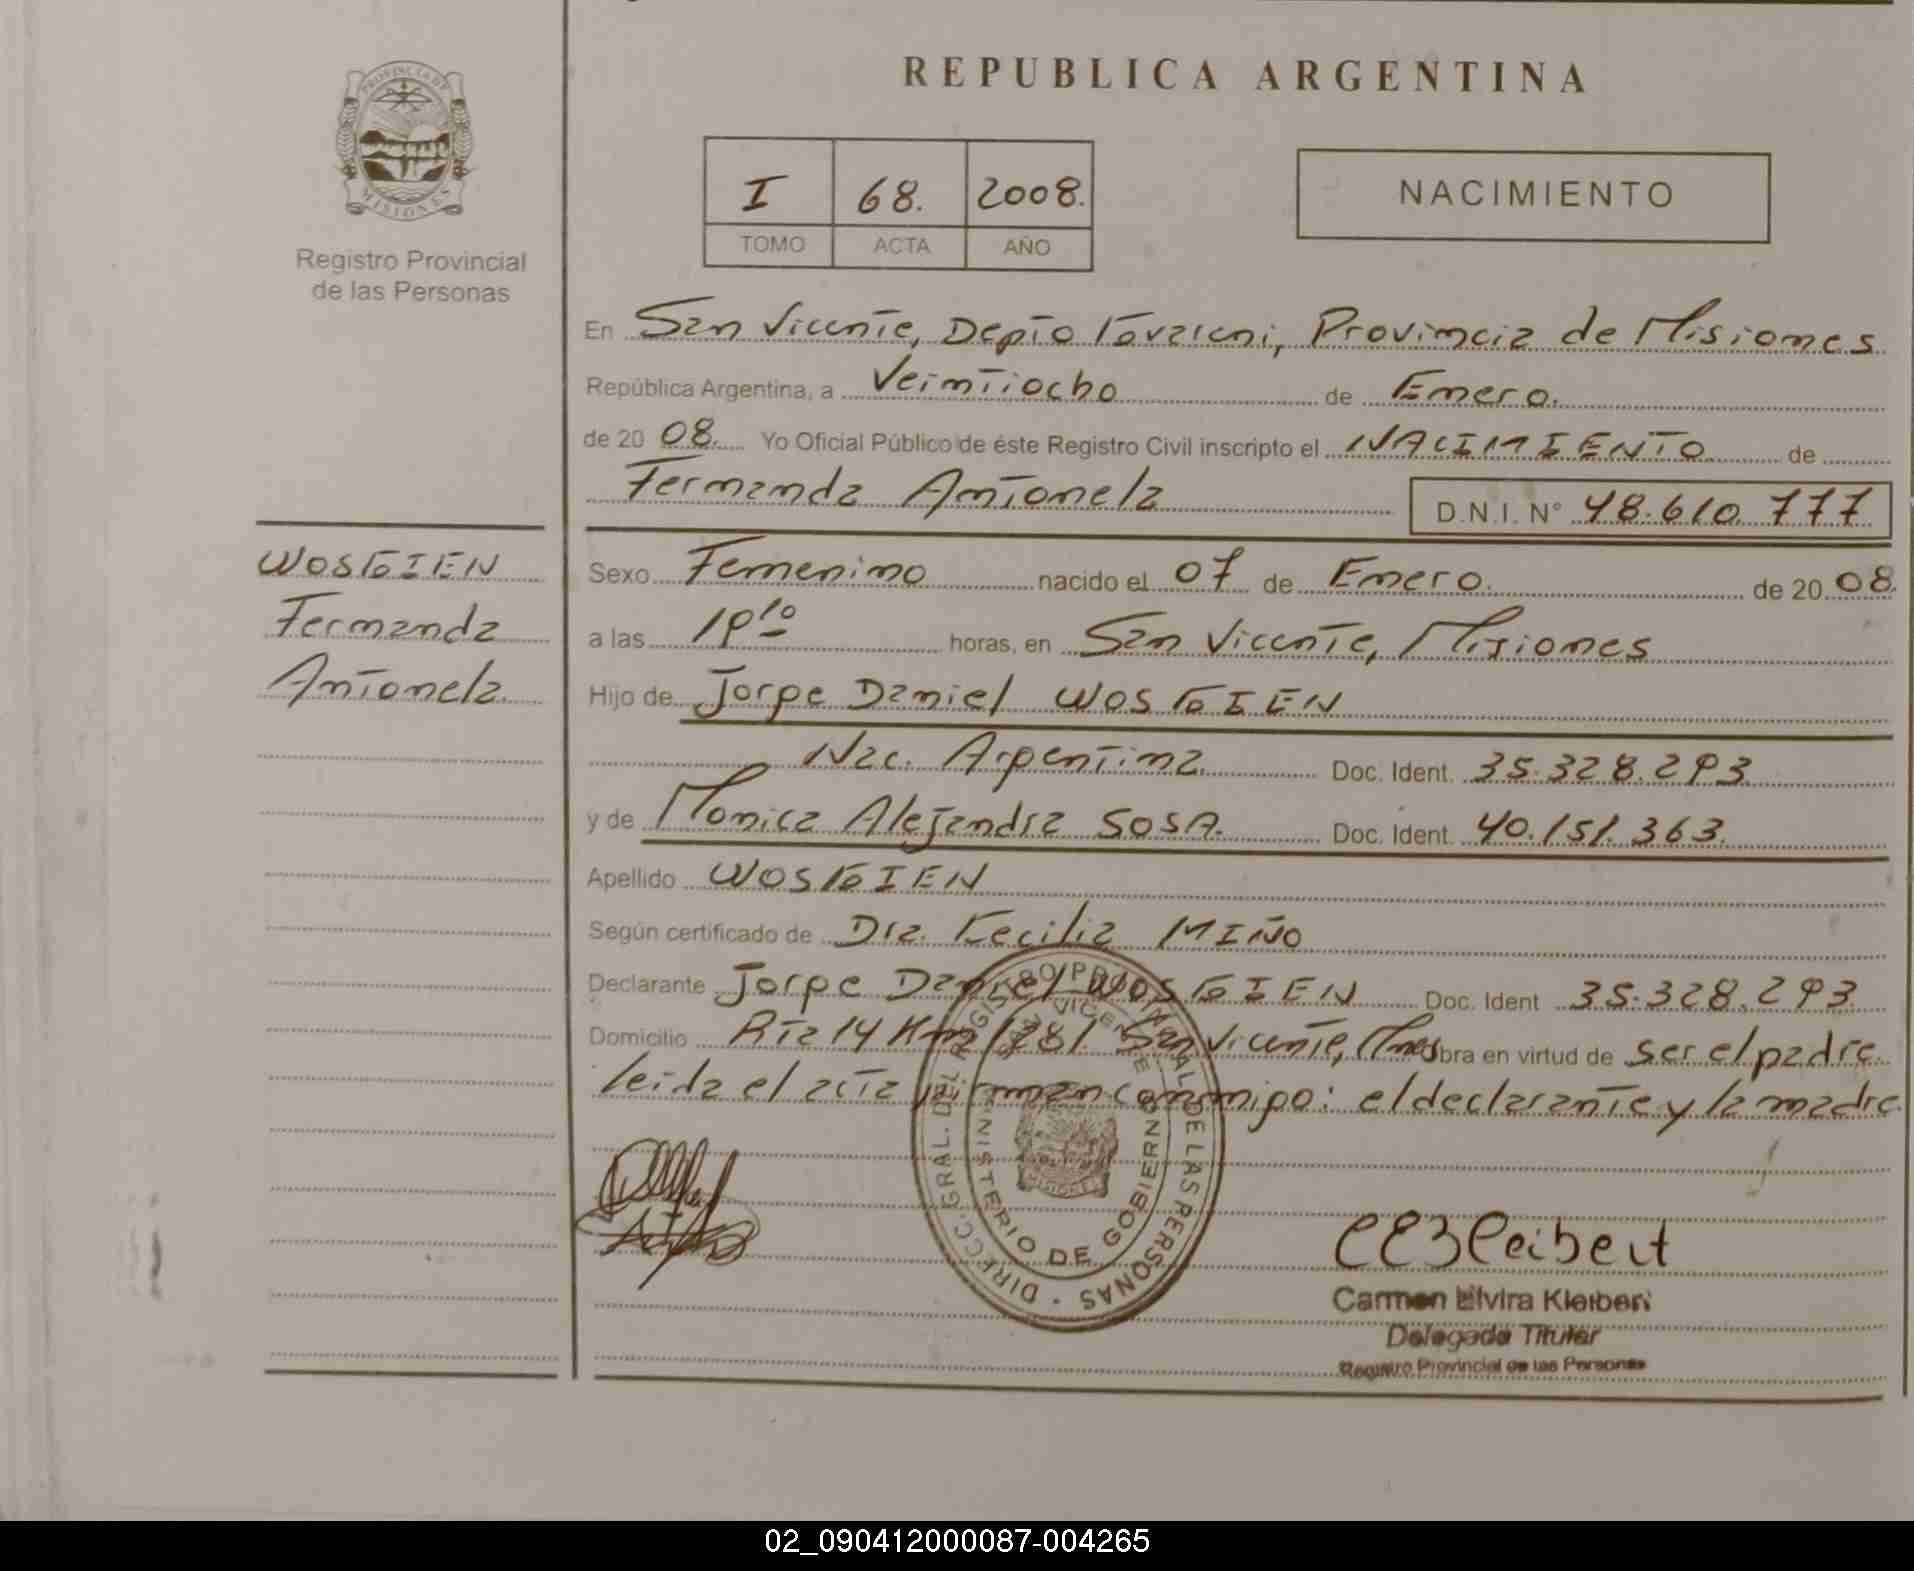 REPUBLICA ARGENTINA
PROVINCIA DE MISIONES
Registro Provincial
de las Personas
I 68. 2008.
TOMO ACTA AÑO
NACIMIENTO
En San Vicente, Depto Guaraní, Provincia de Misiones
República Argentina, a Veintiocho de Enero.
de 2008. Yo Oficial Público de éste Registro Civil inscripto el NACIMIENTO de
Fernanda Antonela
D.N.I. N° 48.610.777
WOSGIEN
Fernanda
Antonela
Sexo Femenino nacido el 07 de Enero. de 2008.
a las horas, en San Vicente, Misiones
Hijo de Jorge Daniel WOSGIEN
Nac. Argentina Doc. Ident. 35.328.293
y de Monica Alejandra SOSA. Doc. Ident. 40.151.363.
Apellido WOSGIEN
Según certificado de Dra. Cecilia MIÑO
Declarante Jorge Daniel WOSGIEN Doc. Ident 35.328.293
Domicilio Rta 14 Km 1281 San Vicente, Mnes obra en virtud de ser el padre.
leida el acta firman conmigo: el declarante y la madre
DIRECC. GRAL. DEL REGISTRO PROVINCIAL DE LAS PERSONAS
SAN VICENTE
MINISTERIO DE GOBIERNO
MISIONES
CEKleibert
Carmen Elvira Kleibert
Delegada Titular
Registro Provincial de las Personas
02_090412000087-004265